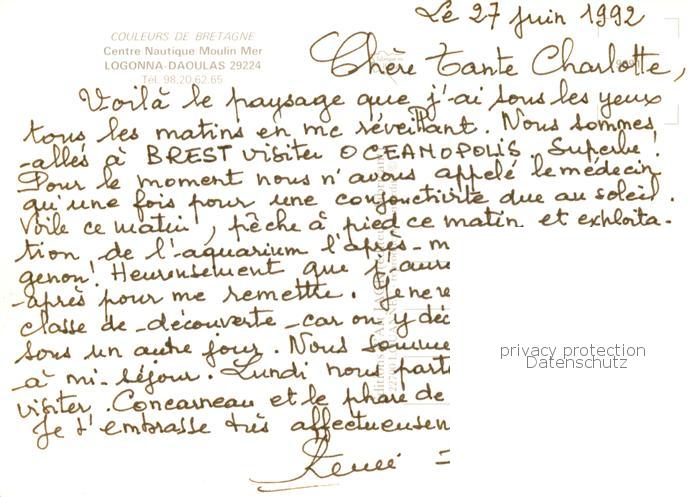 Le 27 juin 1992
COULEURS DE BRETAGNE
Centre Nautique Moulin Mer
LOGONNA-DAOULAS 29224
Tél. 98.20.62.65
Chère Tante Charlotte,
Voilà le paysage que j'ai sous les yeux
tous les matins en me réveillant. Nous sommes
allés à BREST visiter OCEANOPOLIS. Superbe!
Pour le moment nous n'avons appelé le médecin
qu'une fois pour une conjonctivite due au soleil.
Voile ce matin, pêche à pied ce matin et exploita-
tion de l'aquarium l'après-m
genon! Heureusement que j'aure
après pour me remettre. Je ne re
classe de découverte car on y déc
sous un autre jour. Nous somme
à mi-séjour. Lundi nous part
visiter Concarneau et le phare de
Je t'embrasse très affectueusen
privacy protection
Datenschutz